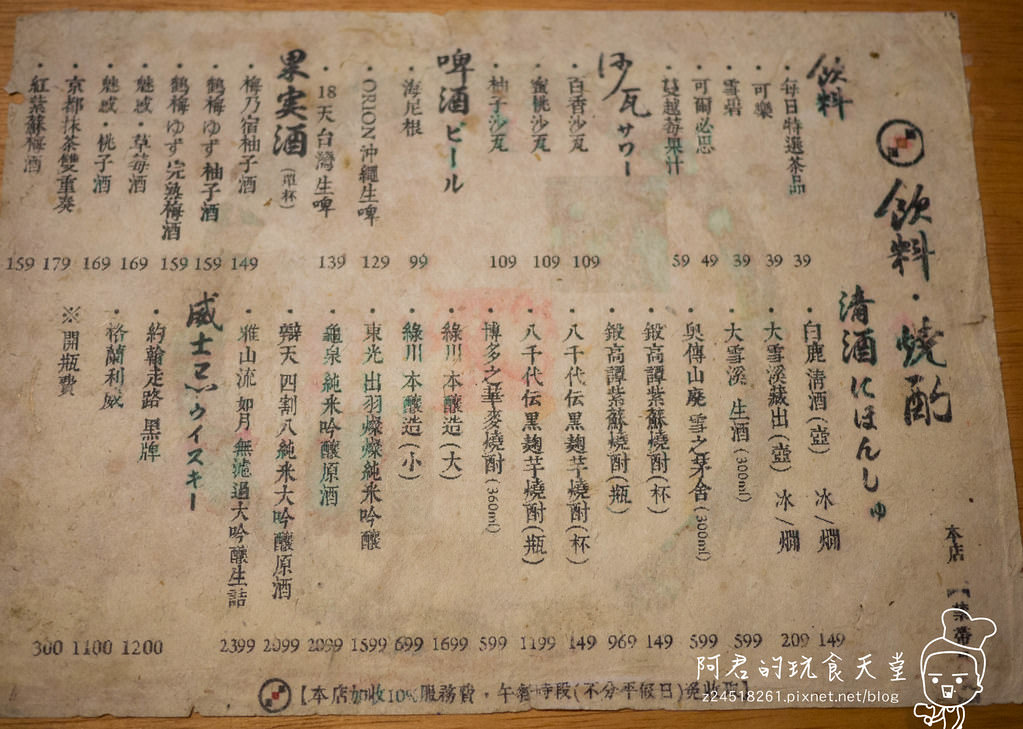 飲料・燒酌
飲料
・每日特選茶品 39
・可樂 39
・雪碧 39
・可爾必思 49
・蔓越莓果汁 59
沙瓦サワー
・百香沙瓦 109
・蜜桃沙瓦 109
・柚子沙瓦 109
啤酒ビール
・海尼根 99
・ORION沖繩生啤 129
・18天台灣生啤 139
果実酒(單杯)
・梅乃宿柚子酒 149
・鶴梅ゆず柚子酒 159
・鶴梅ゆず完熟梅酒 159
・魅惑・草莓酒 169
・魅惑・桃子酒 169
・京都抹茶雙重奏 179
・紅紫蘇梅酒 159
清酒にほんしゅ
・白鹿清酒(壺) 冰/燗 149
・大雪溪藏出(壺) 冰/燗 209
・大雪溪 生酒(300ml) 599
・奥傳山廃 雪之茅舍(300ml) 599
・鍛高譚紫蘇燒酎(杯) 149
・鍛高譚紫蘇燒酎(瓶) 969
・八千代伝黒麹芋燒酎(杯) 149
・八千代伝黒麹芋燒酎(瓶) 1199
・博多之華麥燒酎(360ml) 599
・綠川 本釀造(大) 1699
・綠川 本釀造(小) 699
・東光 出羽燦燦純米吟釀 1599
・龜泉 純米吟釀原酒 2099
・辯天 四割八純米大吟釀原酒 2099
・雅山流 如月 無濾過大吟釀生詰 2399
威士忌ウイスキー
・約翰走路 黑牌 1200
・格蘭利威 1100
※開瓶費 300
本店
【本店加收10%服務費，午餐時段(不分平假日)免收取】
阿君的玩食天堂
z24518261.pixnet.net/blog